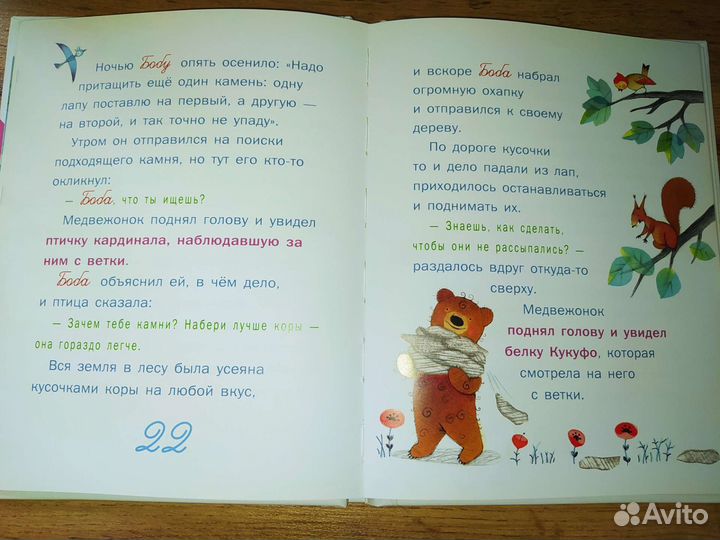 Ночью Бобу опять осенило: «Надо
притащить ещё один камень: одну
лапу поставлю на первый, а другую —
на второй, и так точно не упаду».
Утром он отправился на поиски
подходящего камня, но тут его кто-то
окликнул:
— Боба, что ты ищешь?
Медвежонок поднял голову и увидел
птичку кардинала, наблюдавшую за
ним с ветки.
Боба объяснил ей, в чём дело,
и птица сказала:
— Зачем тебе камни? Набери лучше коры —
она гораздо легче.
Вся земля в лесу была усеяна
кусочками коры на любой вкус,
22
и вскоре Боба набрал
огромную охапку
и отправился к своему
дереву.
По дороге кусочки
то и дело падали из лап,
приходилось останавливаться
и поднимать их.
— Знаешь, как сделать,
чтобы они не рассыпались? —
раздалось вдруг откуда-то
сверху.
Медвежонок
поднял голову и увидел
белку Кукуфо, которая
смотрела на него
с ветки.
Avito